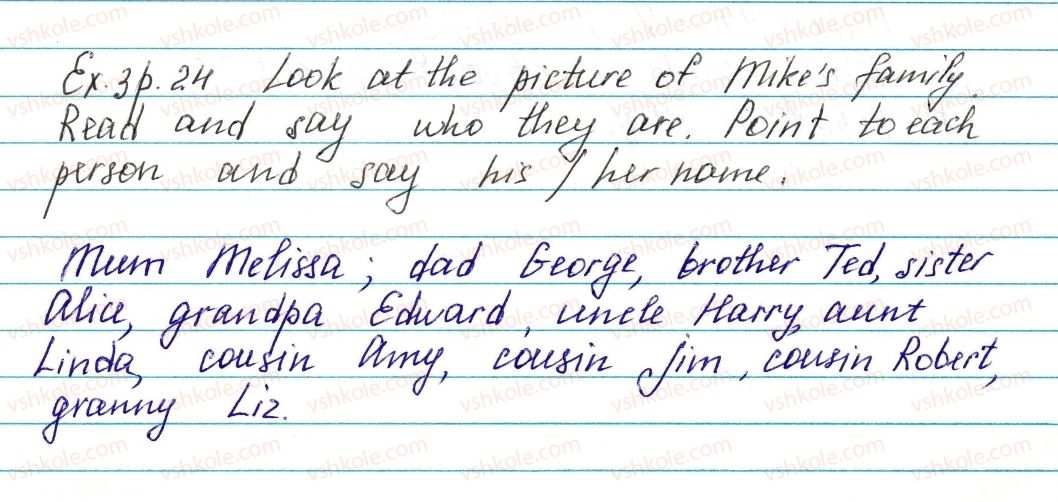 Ex. 3 p. 24 Look at the picture of Mike's family.
Read and say who they are. Point to each
person and say his / her name.
Mum Melissa; dad George, brother Ted, sister
Alice, grandpa Edward, uncle Harry, aunt
Linda, cousin Amy, cousin Jim, cousin Robert,
granny Liz.